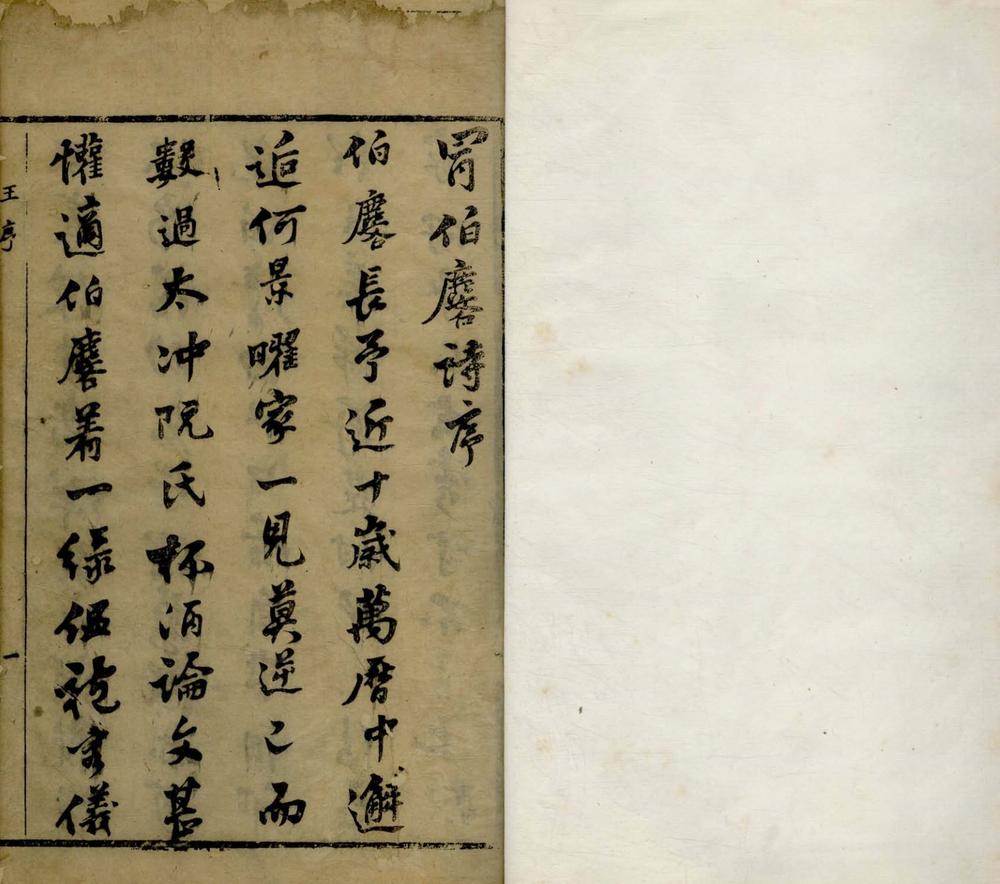 冐伯麐詩序
伯麐長予近十歲萬曆中邂
逅何景曜家一見莫逆已而
數過太冲阮氏杯酒論文甚
懽適伯麐着一緑緼袍容儀
王序
一